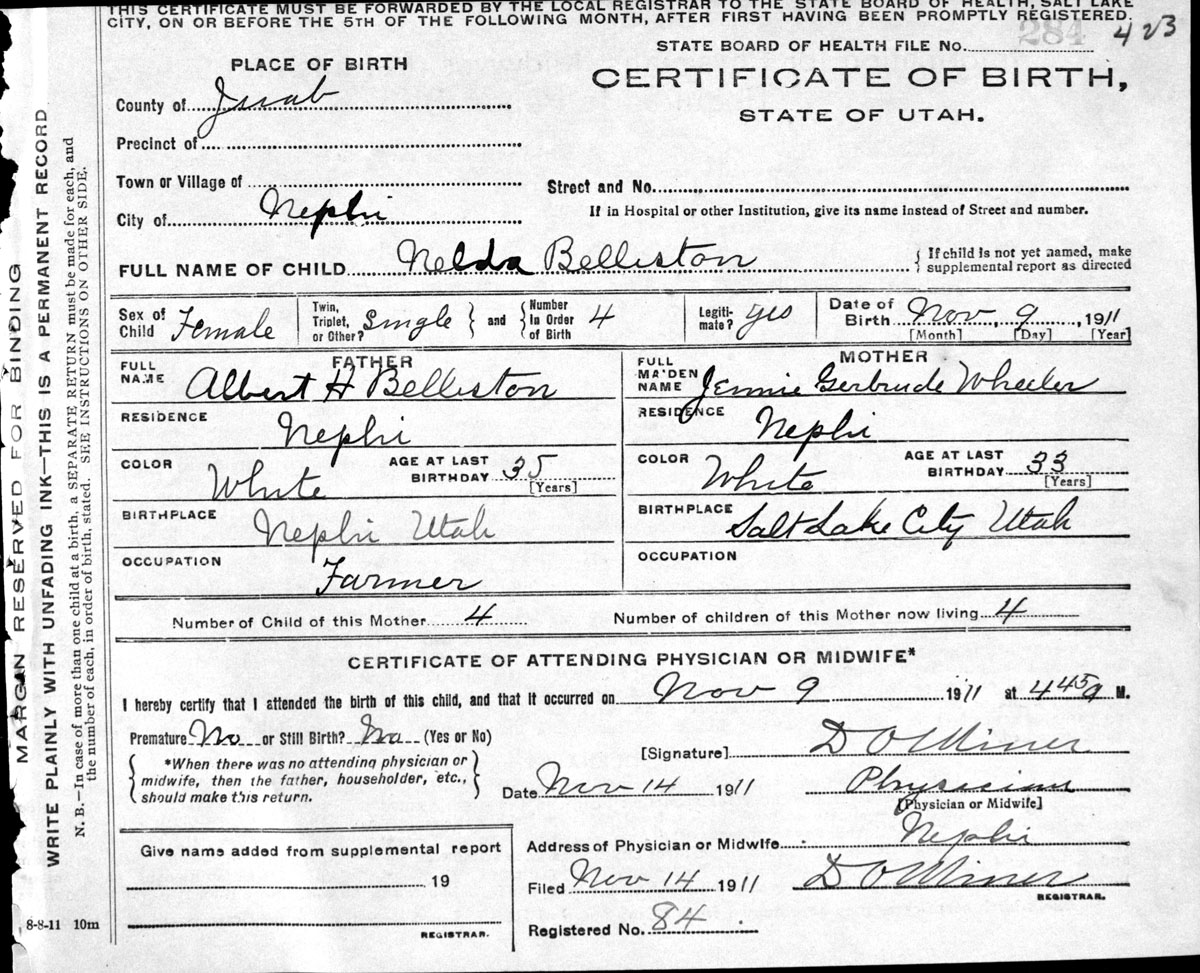 THIS CERTIFICATE MUST BE FORWARDED BY THE LOCAL REGISTRAR TO THE STATE BOARD OF HEALTH, SALT LAKE
CITY, ON OR BEFORE THE 5TH OF THE FOLLOWING MONTH, AFTER FIRST HAVING BEEN PROMPTLY REGISTERED.
284 423
STATE BOARD OF HEALTH FILE No.
PLACE OF BIRTH
CERTIFICATE OF BIRTH,
STATE OF UTAH.
County of Juab
Precinct of
Town or Village of
Street and No.
City of Nephi
If in Hospital or other Institution, give its name instead of Street and number.
FULL NAME OF CHILD Nelda Belliston { If child is not yet named, make
supplemental report as directed
Sex of Child Female Twin, Triplet, or Other? Single } and { Number In Order of Birth 4 Legiti- mate? yes Date of Birth Nov 9, 1911
[Month] [Day] [Year]
FATHER
FULL NAME Albert H Belliston
RESIDENCE Nephi
COLOR White AGE AT LAST BIRTHDAY 35
[Years]
BIRTHPLACE Nephi Utah
OCCUPATION Farmer
MOTHER
FULL MAIDEN NAME Jennie Gertrude Wheeler
RESIDENCE Nephi
COLOR White AGE AT LAST BIRTHDAY 33
[Years]
BIRTHPLACE Salt Lake City Utah
OCCUPATION
Number of Child of this Mother 4 Number of children of this Mother now living 4
CERTIFICATE OF ATTENDING PHYSICIAN OR MIDWIFE*
I hereby certify that I attended the birth of this child, and that it occurred on Nov 9 1911 at 4 45 a M.
Premature No or Still Birth? No (Yes or No)
[Signature] D O Miner
{ *When there was no attending physician or
midwife, then the father, householder, etc.,
should make this return. }
Date Nov 14 1911 Physician
[Physician or Midwife]
Address of Physician or Midwife Nephi
Filed Nov 14 1911 D O Miner
REGISTRAR.
Registered No. 84
Give name added from supplemental report
19
REGISTRAR.
8-8-11 10m
MARGIN RESERVED FOR BINDING
WRITE PLAINLY WITH UNFADING INK—THIS IS A PERMANENT RECORD
N. B.—In case of more than one child at a birth, a SEPARATE RETURN must be made for each, and
the number of each, in order of birth, stated. SEE INSTRUCTIONS ON OTHER SIDE.